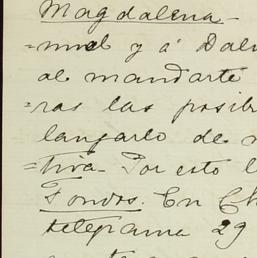 Magdalena -
=nuel y á Dalm
al mandarte
=ras las posib
lanzarlo de n
=tiva. Por esto l
Fondos. En Ch
telegrama 29